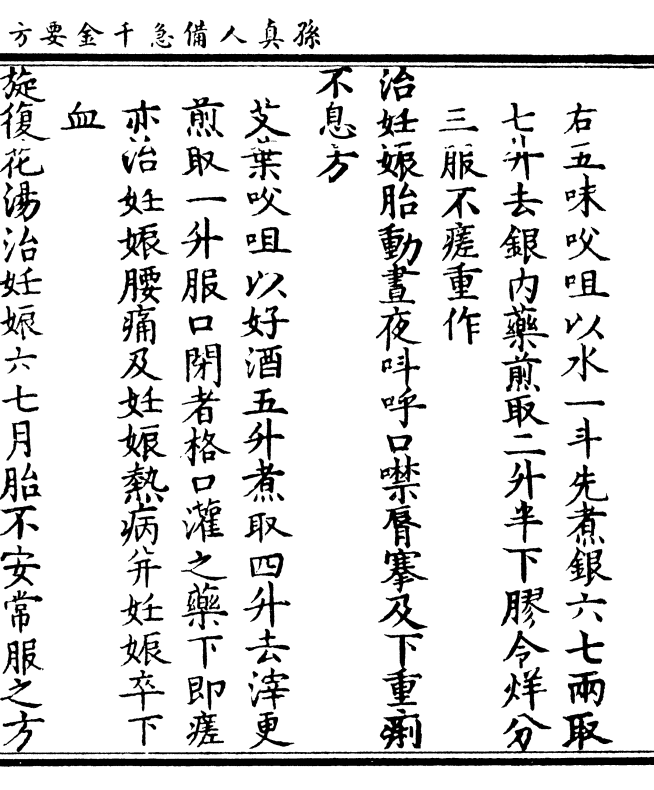 孫真人備急千金要方
右五味㕮咀以水一斗先煮銀六七兩取
七升去銀內藥煎取二升半下膠令烊分
三服不瘥重作
治妊娠胎動晝夜叫呼口噤脣搴及下重痢
不息方
艾葉㕮咀以好酒五升煮取四升去滓更
煎取一升服口閉者格口灌之藥下即瘥
亦治妊娠腰痛及妊娠熱病并妊娠卒下
血
旋復花湯治妊娠六七月胎不安常服之方